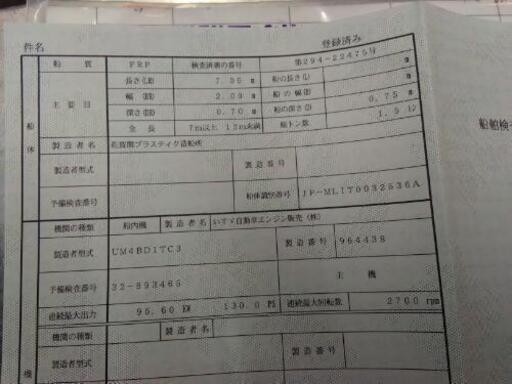 件名
登録済み
船質 ＦＲＰ 検査済票の番号 第２９４-２２４７５号
主要目 長さ(Lв) 7.96 m 船の長さ(L) m
幅 (B) 2.09 m 船の幅(B) m
深さ(D) 0.70 m 船の深さ(D) 0.75 m
全長 7m以上 12m未満 総トン数 1.5 トン
船体
製造者名 佐賀関プラスティク造船所
製造者型式 製造番号
予備検査番号 船体識別番号 JP-ML1T0032S36A
船舶検
機関の種類 船内機 製造者名 いすゞ自動車エンジン販売（株）
製造者型式 UM4BD1TC3 製造番号 964438
予備検査番号 32-893465 主機
連続最大出力 95.60 KW 130.0 PS 連続最大回転数 2700 rpm
機関の種類 製造者名
製造者型式 製造番号
機